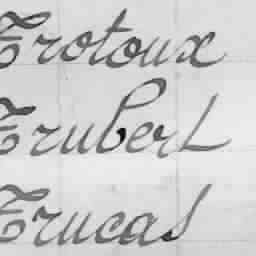 Trotoux
Trubert
Trucas